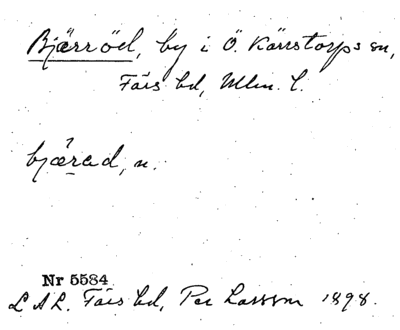 Bjärröd, by i Ö. Kärrstorps sn,
Färs hd, Mlm. l.
bjärad, n.
Nr 5584
LAL. Färs hd, Per Larsson 1898.